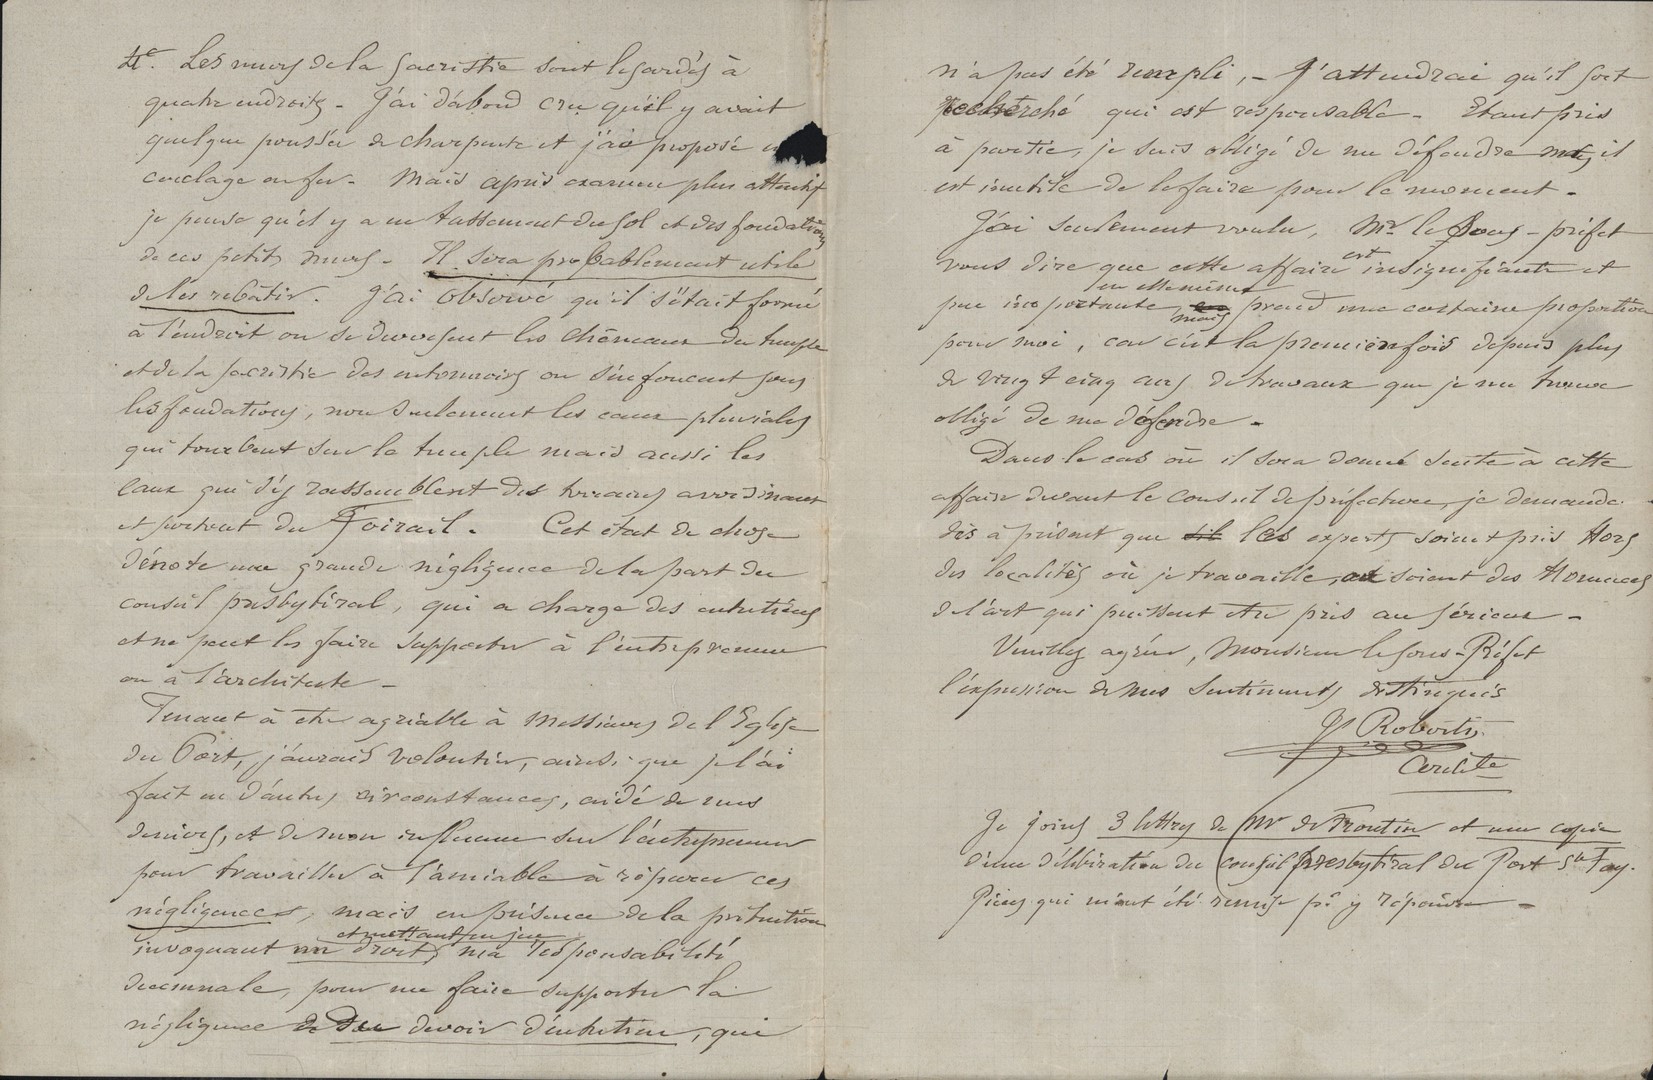 4e. Les murs de la Sacristie sont lézardés à
quatre endroits - J'ai d'abord cru qu'il y avait
quelque poussée de charpente et j'ai proposé
cerclage en fer - Mais après examen plus attentif
je pense qu'il y a un tassement du sol et des fondations
de ces petits murs - Il sera probablement utile
de les rebâtir. J'ai observé qu'il s'était formé
à l'endroit ou se deversent les chêneaux du temple
et de la sacristie des entonnoirs ou s'enfoncent sous
les fondations, non seulement les eaux pluviales
qui tombent sur le temple mais aussi les
eaux qui s'y rassemblent des terrains avoisinants
et surtout du Foirail. Cet état de chose
dénote une grande négligence de la part du
conseil presbytéral, qui a charge des entretiens
et ne peut les faire supporter à l'entrepreneur
ou à l'architecte -
Tenant à être agréable à Messieurs de l'Eglise
du Port, j'aurais volontiers, ainsi que je l'ai
fait en d'autres circonstances, aidé de mes
deniers, et de mon influence sur l'entrepreneur
pour travailler à l'amiable à réparer ces
négligences, mais en présence de la prétention
invoquant un droit, et mettant en jeu ma responsabilité
decennale, pour me faire supporter la
négligence de Du devoir d'entretien, qui
n'a pas été rempli, - J'attendrai qu'il soit
recherché qui est responsable - Etant pris
à partie, je suis obligé de me défendre mais il
est inutile de le faire pour le moment -
J'ai seulement voulu, Mr. le Sous-préfet
vous dire que cette affaire est insignifiante et
peu importante en elle même mais prend une certaine proportion
pour moi, car c'est la première fois depuis plus
de vingt cinq ans de travaux que je me trouve
obligé de me défendre -
Dans le cas où il sera donné suite à cette
affaire devant le conseil de préfecture, je demande
dès à présent que les experts soient pris Hors
des localités où je travaille, et soient des Hommes
de l'art qui puissent être pris au sérieux -
Veuillez agréer, Monsieur le Sous-Préfet
l'expression de mes sentiments distingués
Roberts
Archite
Je joins 3 lettres de Mr de Frontin et une copie
d'une délibération du conseil Presbytéral du Port Ste Foy.
Pièces qui m'ont été remises pr y répondre -